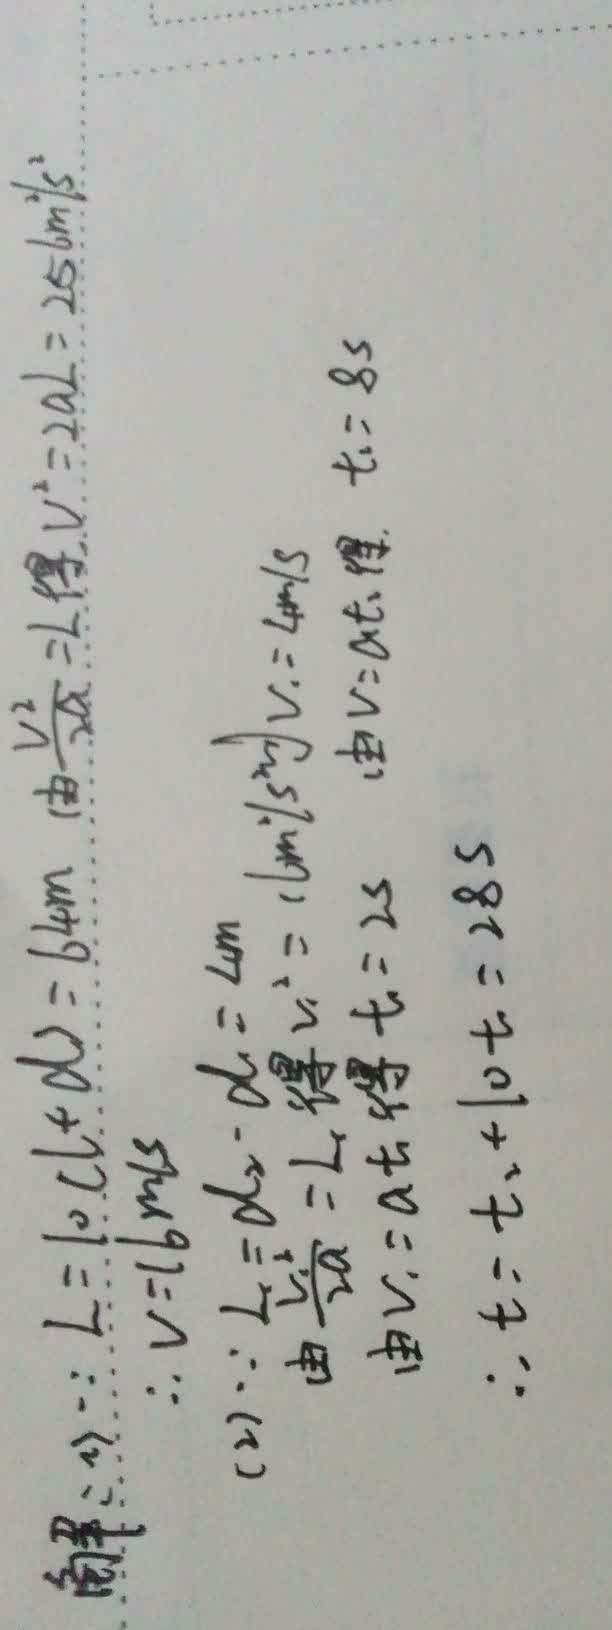 解:(1)∵ L=10(l+d)=64m 由v²/2a=L得 v²=2aL=256m²/s²
∴ v=16m/s
(2)∵ L₁=d₂-d₁=4m
由v₁²/2a=L₁得 v₁²=16m²/s² v₁=4m/s
由v₁=at₁得 t₁=2s 由v=at₂得 t₂=8s
∴ t=t₂+10t₁=28s